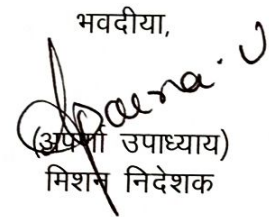 भवदीया,
Aparna. U
(अपर्णा उपाध्याय)
मिशन निदेशक